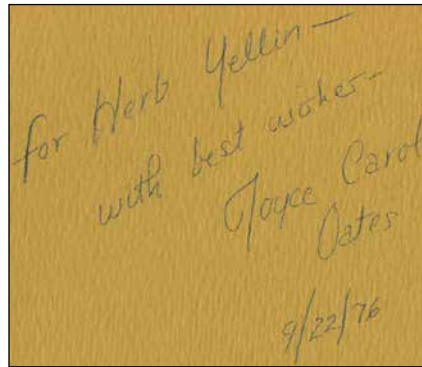 for Herb Yellin—
with best wishes—
Joyce Carol
Oates
9/22/76